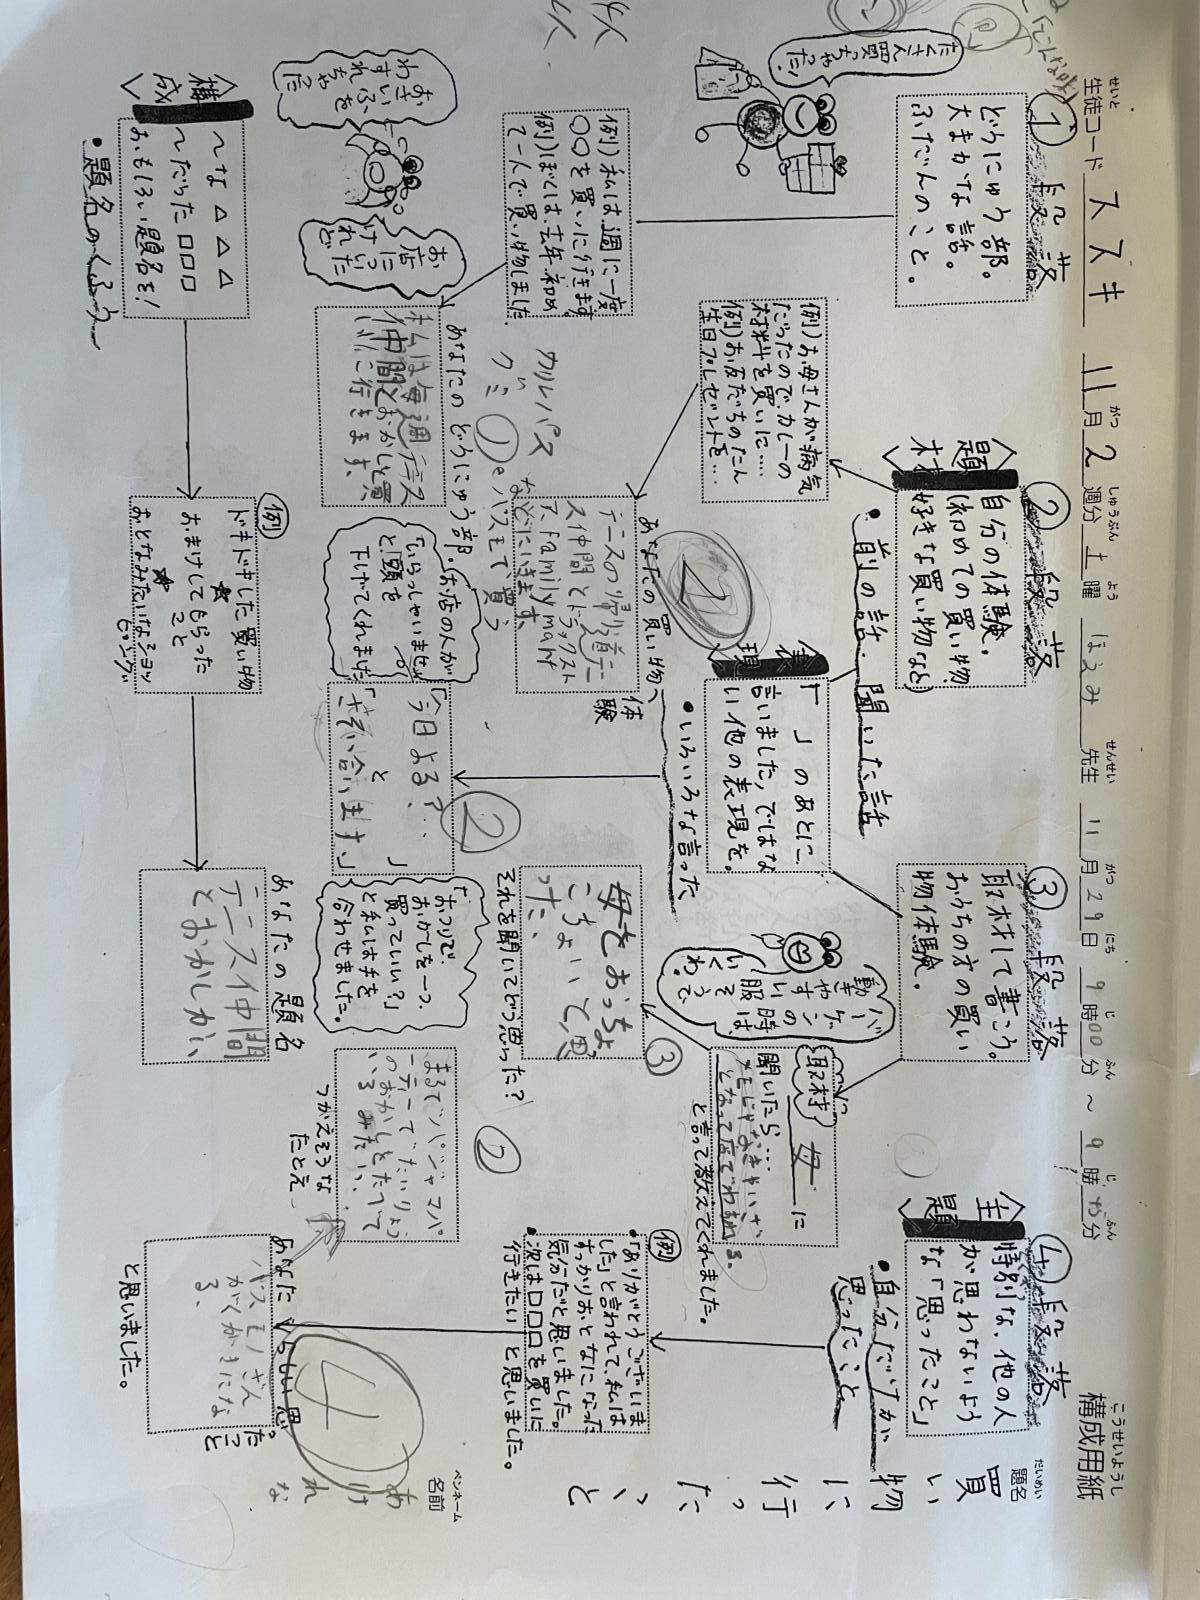 構成用紙
生徒コード ススキ 11月2週分 土曜 ほえみ 先生 11月29日 9時00分 ~ 9時45分
題名
買い物に行ったこと
ペンネーム
名前
あけれな
①段落
どうにゅう部。
大まかな話。
ふだんのこと。
たくさん
買っちゃ
った!
例)私は週に一度
〇〇を買いに行きます。
例)ぼくは、去年、初め
て一人で買い物しました。
お店に
ついた
けれど
おさいふを
わすれちゃ
った
あなたのどうにゅう部。
私は毎週テニス
仲間とおかしを買
いに行きます。
カルパス
グミ
①
パスモで買う
②段落
題材
自分の体験。
(初めての買い物
好きな買い物など)
・前の話・聞いた話
例)お母さんが病気
だったので、カレーの
材料を買いに…。
例)お友だちのたん
生日プレゼントを…
あなたの買い物
体験
テニスの帰り道テニ
ス仲間とドラックスト
ア、family mart
などにいきます。
表現
「 」のあとに、
言いました,ではな
い他の表現を。
・いろいろな言った
お店の人が
「いらっしゃいませ。」
と頭を
下げてくれました。
「今日よる?…
」
と
「さそい合います。」
②
「おつりで、
おかしを一つ、
買っていい?」
と私は手を
合わせました。
③段落
取材して書こう。
おうちの方の買い
物体験。
バーゲンの時は、
動きやすい服
でいくわ。
取材
母に
聞いたら…
と言って教えてくれました。
③
それを聞いてどう思った?
母をおっちょ
こちょいと思
った、
②
まるでパジャマパ
ーティーでたいりょう
のおかしをたべて
いるみたい、
つかえそうな
たとえ
④段落
主題
特別な、他の人
が思わないよう
な「思ったこと」
・自分だけが
思ったこと
例
・「ありがとうございま
した」と言われて、私は
すっかりおとなになった
気分だと思いました。
・次は□□□を買いに
行きたいと思いました。
あなたらしい思ったこと
パスモノざん
がくがきにな
る、
と思いました。
4
構成
~な△△△
~だった□□□
おもしろい題名を!
・題名のくふう
例
ドキドキした買い物
おまけしてもらった
こと
おとなみたいなショッ
ピング
あなたの題名
テニス仲間
とおかしかい